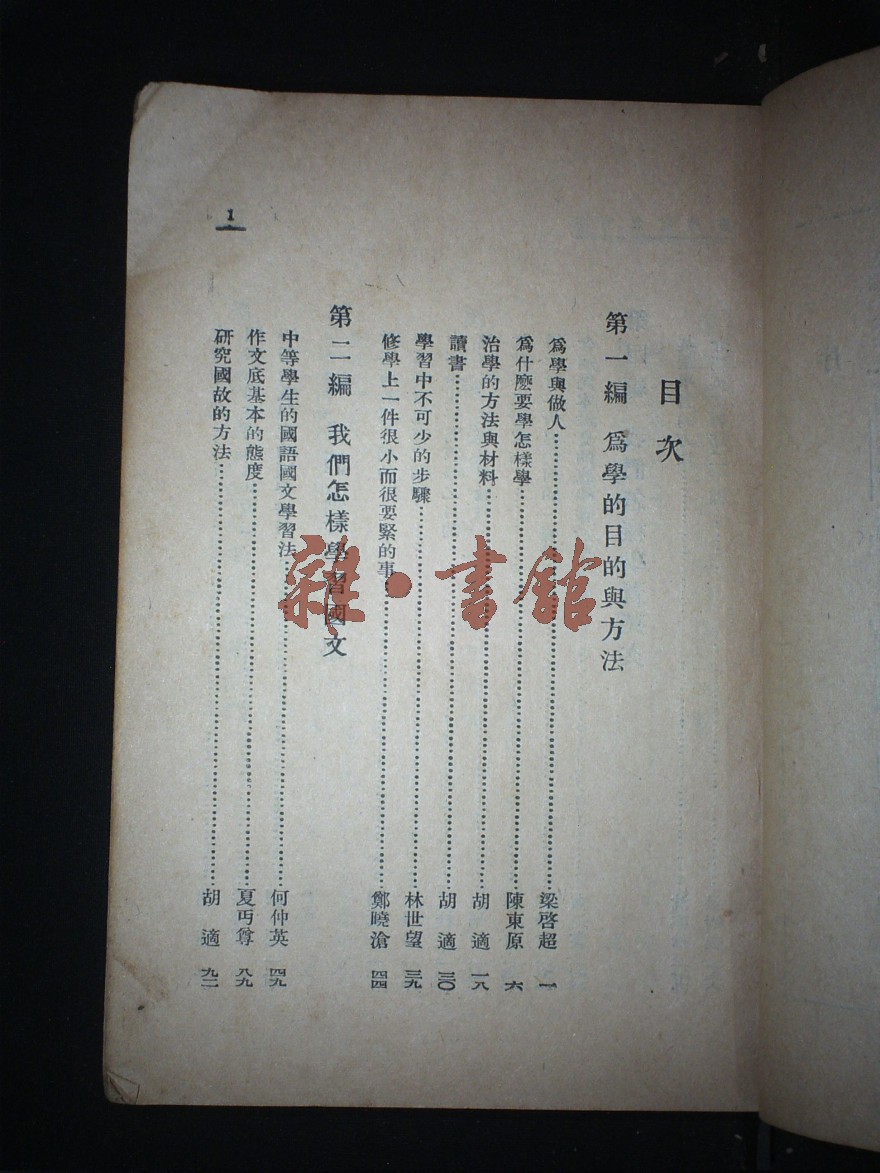 目次
第一編 爲學的目的與方法
爲學與做人………………梁啓超 一
爲什麽要學怎樣學………………陳東原 六
治學的方法與材料………………胡適 一八
讀書………………胡適 三〇
學習中不可少的步驟………………林世望 三九
修學上一件很小而很要緊的事………………鄭曉滄 四四
第二編 我們怎樣學習國文
中等學生的國語國文學習法………………何仲英 四九
作文底基本的態度………………夏丏尊 八九
研究國故的方法………………胡適 九二
1
雜·書館